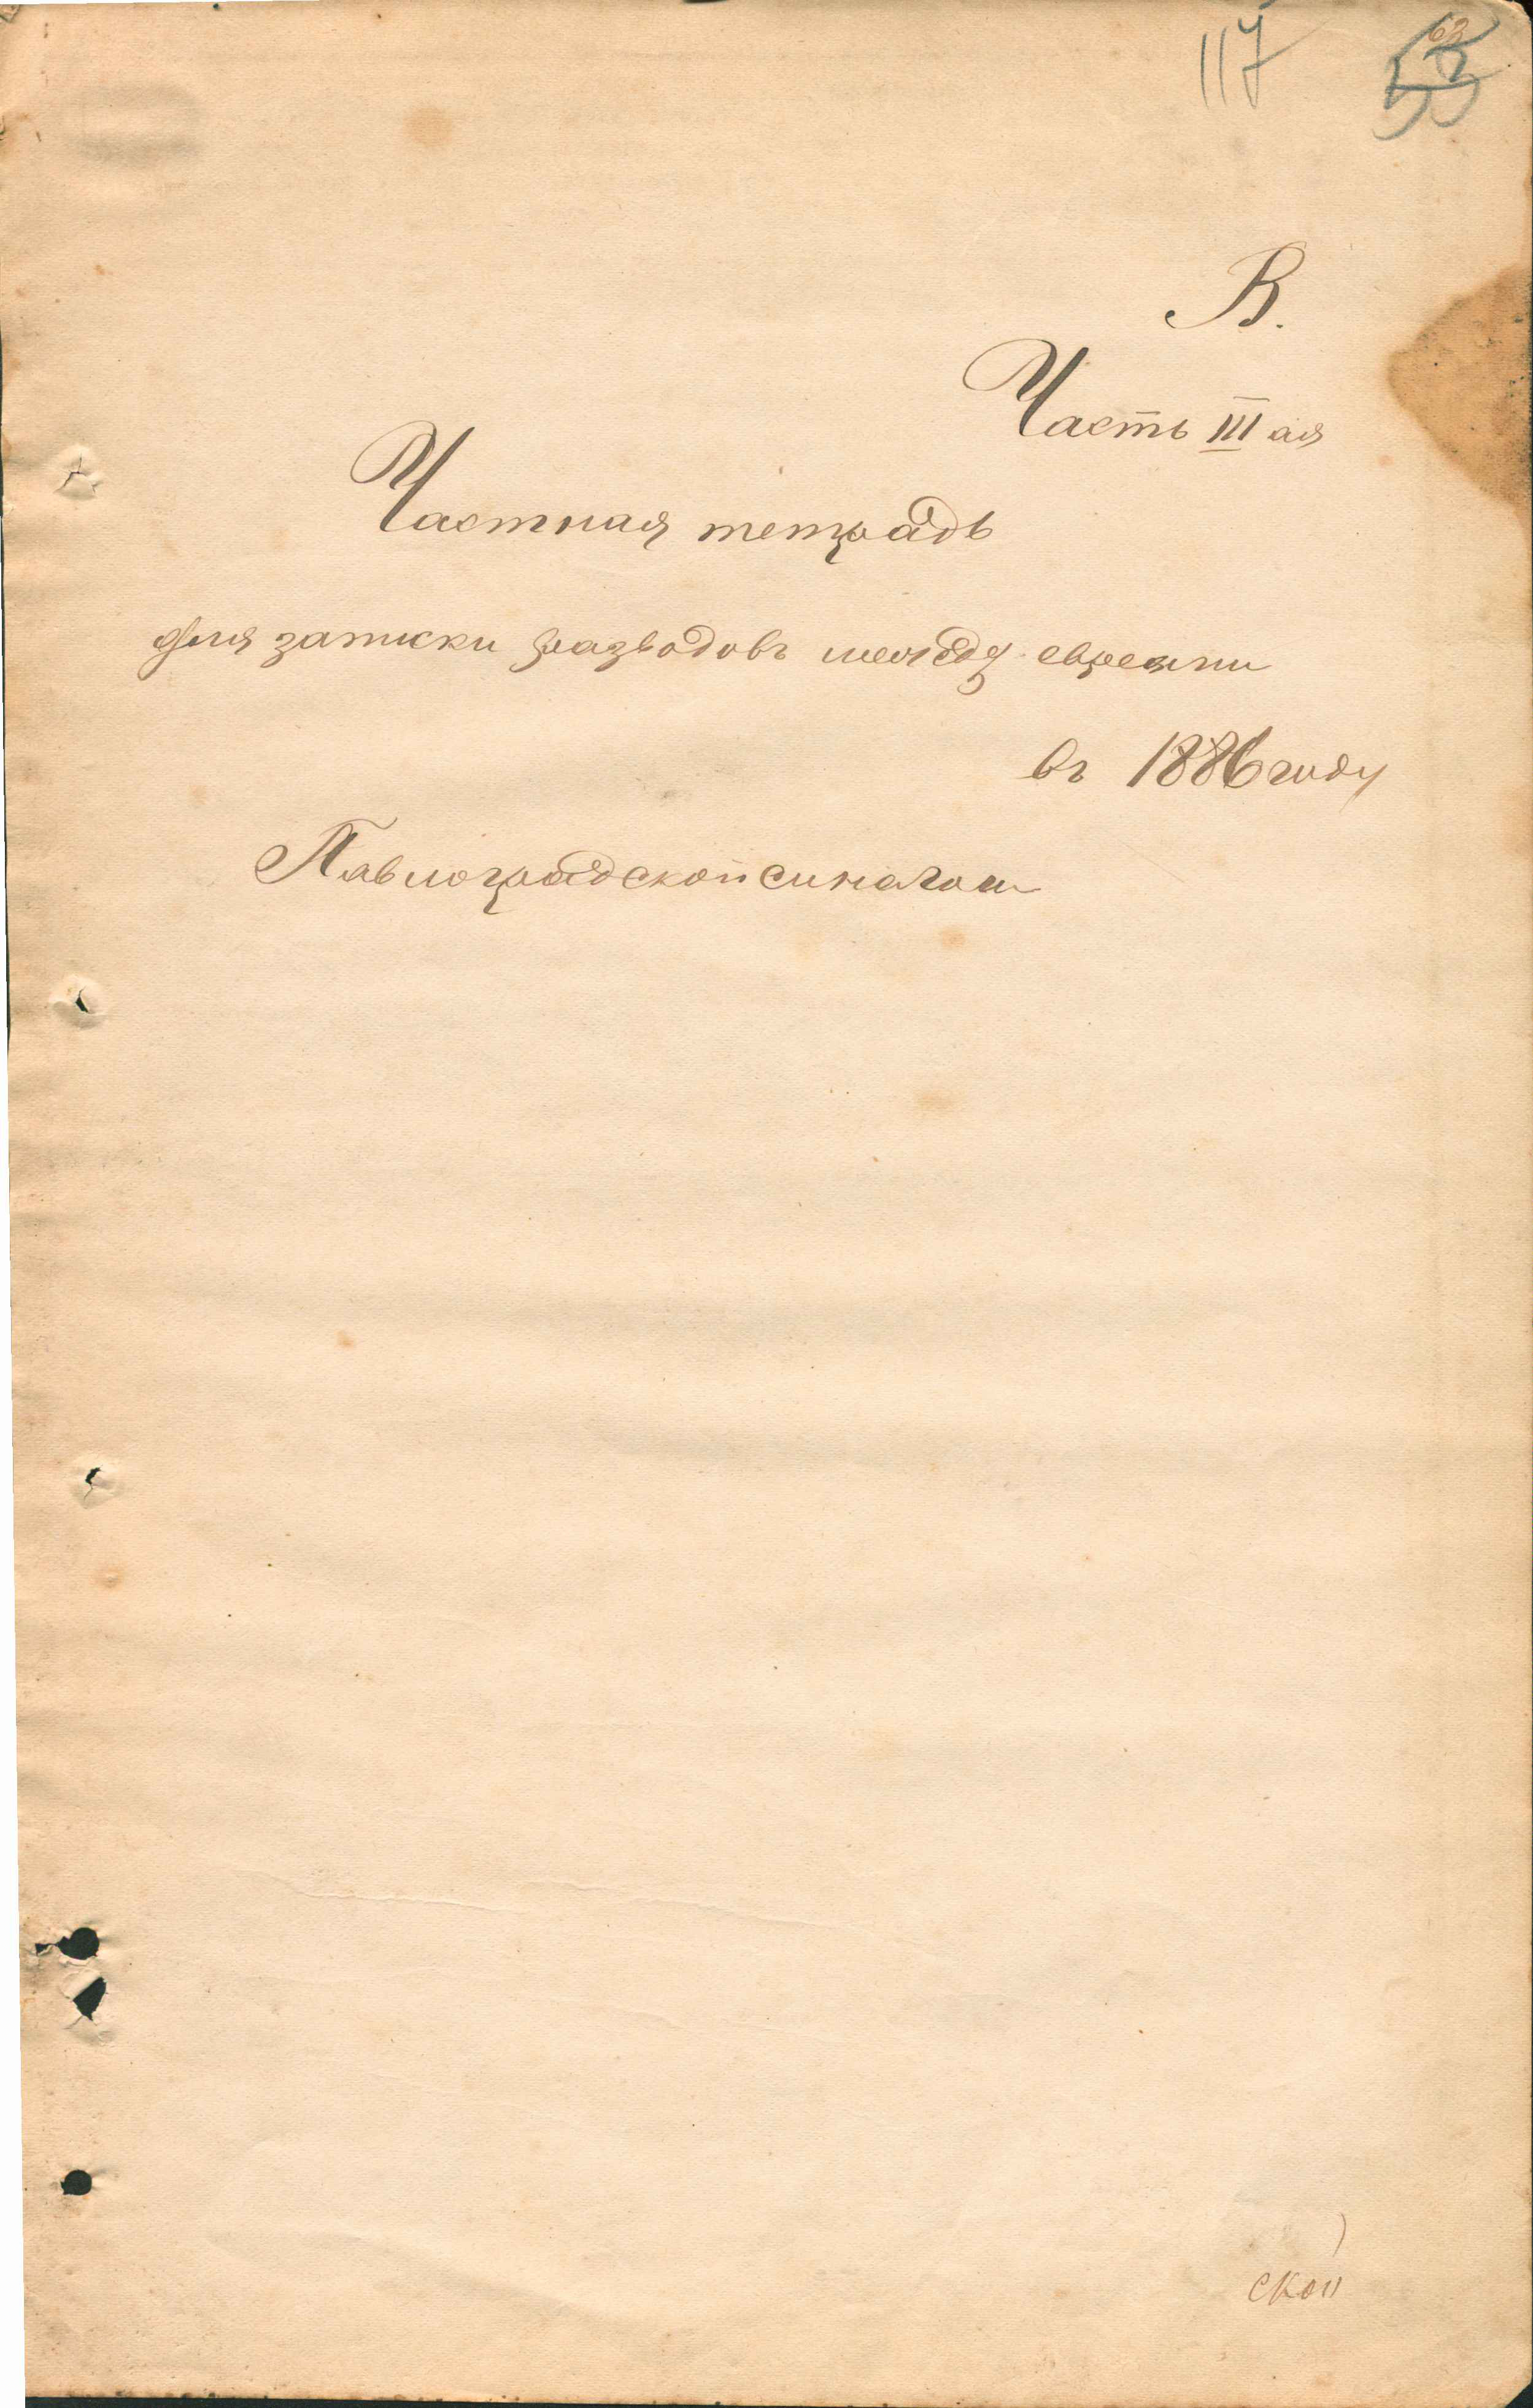 117
В.
Часть III ая
Частная тетрадь
для записки разводовъ между евреями
въ 1886 году
Павлоградской синагоги
ской